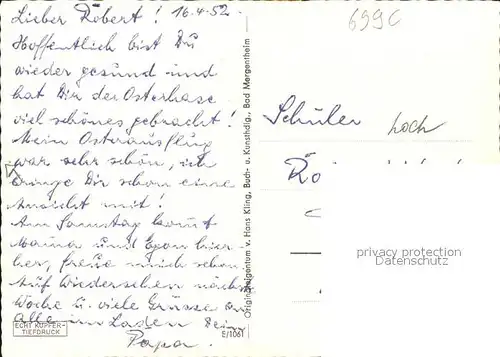 Lieber Robert! 16.4.52.
Hoffentlich bist Du
wieder gesund und
hat Dir der Osterhase
viel schönes gebracht!
Mein Osterausflug
war sehr schön, ich
bringe Dir schon eine
Ansicht mit!
Am Sonntag kommt
Mama und Egon hier-
her, freue mich schon.
Auf Wiedersehen nächste
Woche u. viele Grüsse an
alle im Laden Dein
Papa.
ECHT KUPFER-
TIEFDRUCK
E/1061
Originaleigentum v. Hans Kling, Buch- u. Kunsthdlg., Bad Mergentheim
699C
Schüler hoch
Ro
privacy protection
watermark